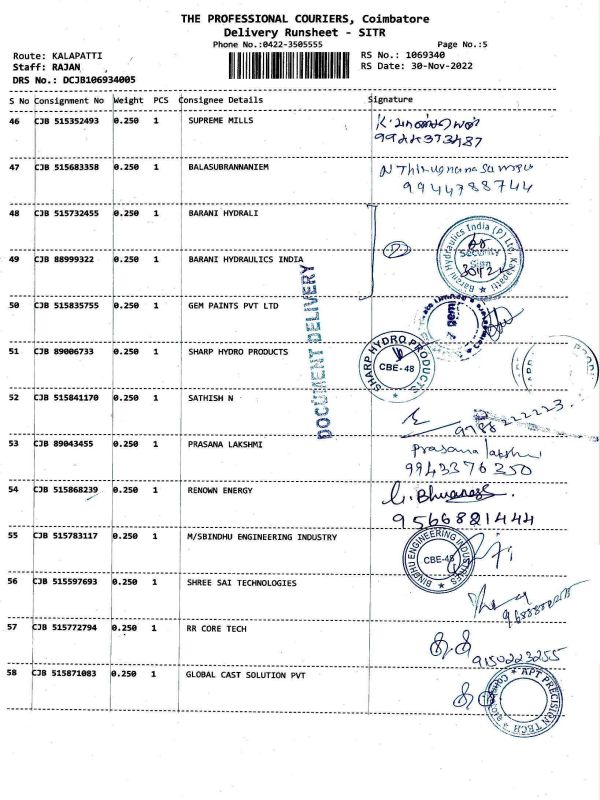 THE PROFESSIONAL COURIERS, Coimbatore
Delivery Runsheet - SITR
Phone No.:0422-3505555 Page No.:5
Route: KALAPATTI RS No.: 1069340
Staff: RAJAN RS Date: 30-Nov-2022
DRS No.: DCJB106934005
S No Consignment No Weight PCS Consignee Details Signature
46 CJB 515352493 0.250 1 SUPREME MILLS
47 CJB 515683358 0.250 1 BALASUBRANNANIEM N Thirugnana Sam
9944788744
48 CJB 515732455 0.250 1 BARANI HYDRALI
Barani Hydraulics India (P) Ltd, Kalapatti
Security
49 CJB 88999322 0.250 1 BARANI HYDRAULICS INDIA
DOCUMENT DELIVERY
50 CJB 515835755 0.250 1 GEM PAINTS PVT LTD gem
51 CJB 89006733 0.250 1 SHARP HYDRO PRODUCTS SHARP HYDRO PRODUCTS
CBE-48
52 CJB 515841170 0.250 1 SATHISH N 9788222223.
53 CJB 89043455 0.250 1 PRASANA LAKSHMI Prasana lakshmi
9943376350
54 CJB 515868239 0.250 1 RENOWN ENERGY
9566821444
55 CJB 515783117 0.250 1 M/SBINDHU ENGINEERING INDUSTRY BINDHU ENGINEERING INDUSTRIES
CBE-48
56 CJB 515597693 0.250 1 SHREE SAI TECHNOLOGIES
57 CJB 515772794 0.250 1 RR CORE TECH
9150223255
58 CJB 515871083 0.250 1 GLOBAL CAST SOLUTION PVT APT PRECISION TECH